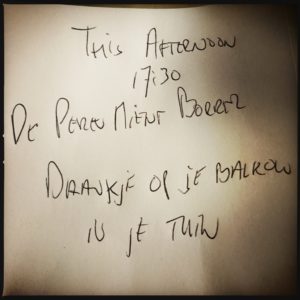 This Afternoon
17:30
De Peren Mient Borrel
Drankje op je Balkon
in je tuin